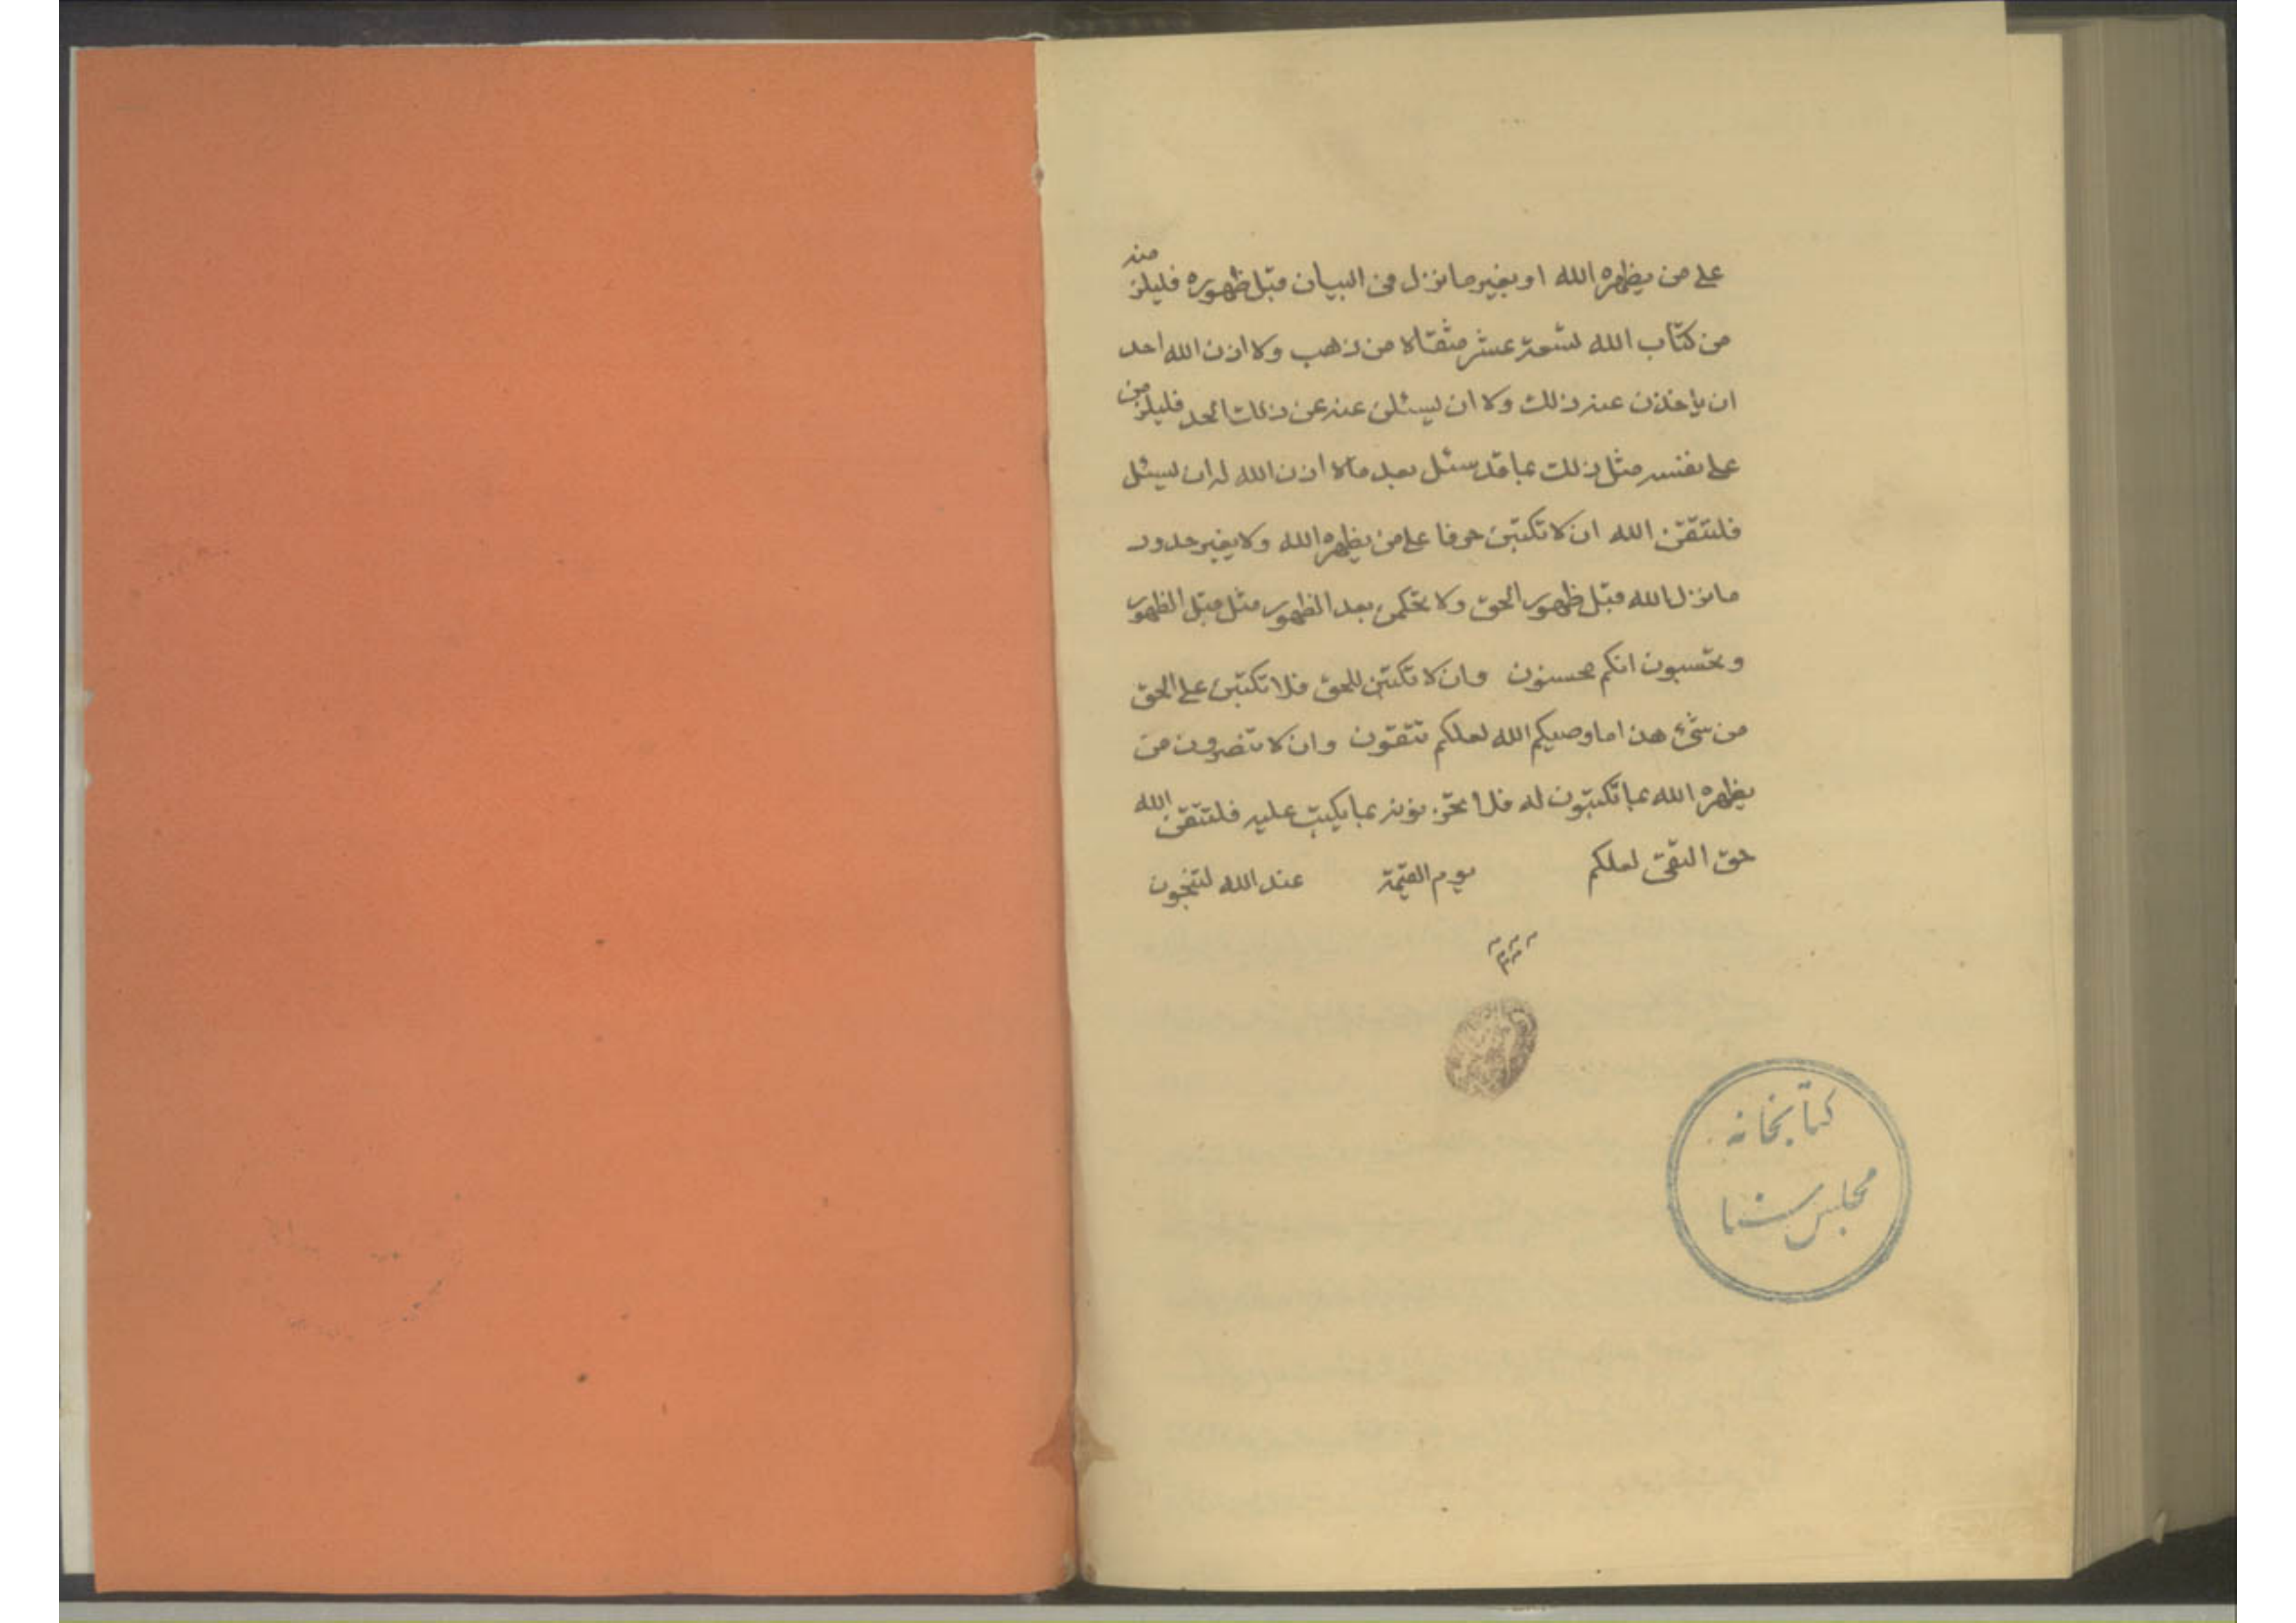 على من يظهره الله او بغير ما نزل فى البيان قبل ظهوره فليلزمنه
من كتاب الله تسعة عشر مثقالا من ذهب ولا اذن الله احد
ان ياخذن عنه ذلك ولا ان يسئلن عنه عن ذلك الحد فليلزمن
على نفسه مثل ذلك بما قد سئل بعد ما لا اذن الله له ان يسئل
فلتتقن الله ان لا تكتبن حرفا على من يظهره الله ولا بغير حدود
ما نزل الله قبل ظهور الحق ولا تحكمن بعد الظهور مثل قبل الظهور
وتحسبون انكم محسنون وان لا تكتبن للحق فلا تكتبن على الحق
من شئ هذا ما وصيكم الله لعلكم تتقون وان لا تنصرون من
يظهره الله بما تكتبون له فلا تحزنونه بما يكتب عليه فلتتقن الله
حق التقى لعلكم يوم القيمة عند الله لتنجون
كتابخانه
مجلس سنا